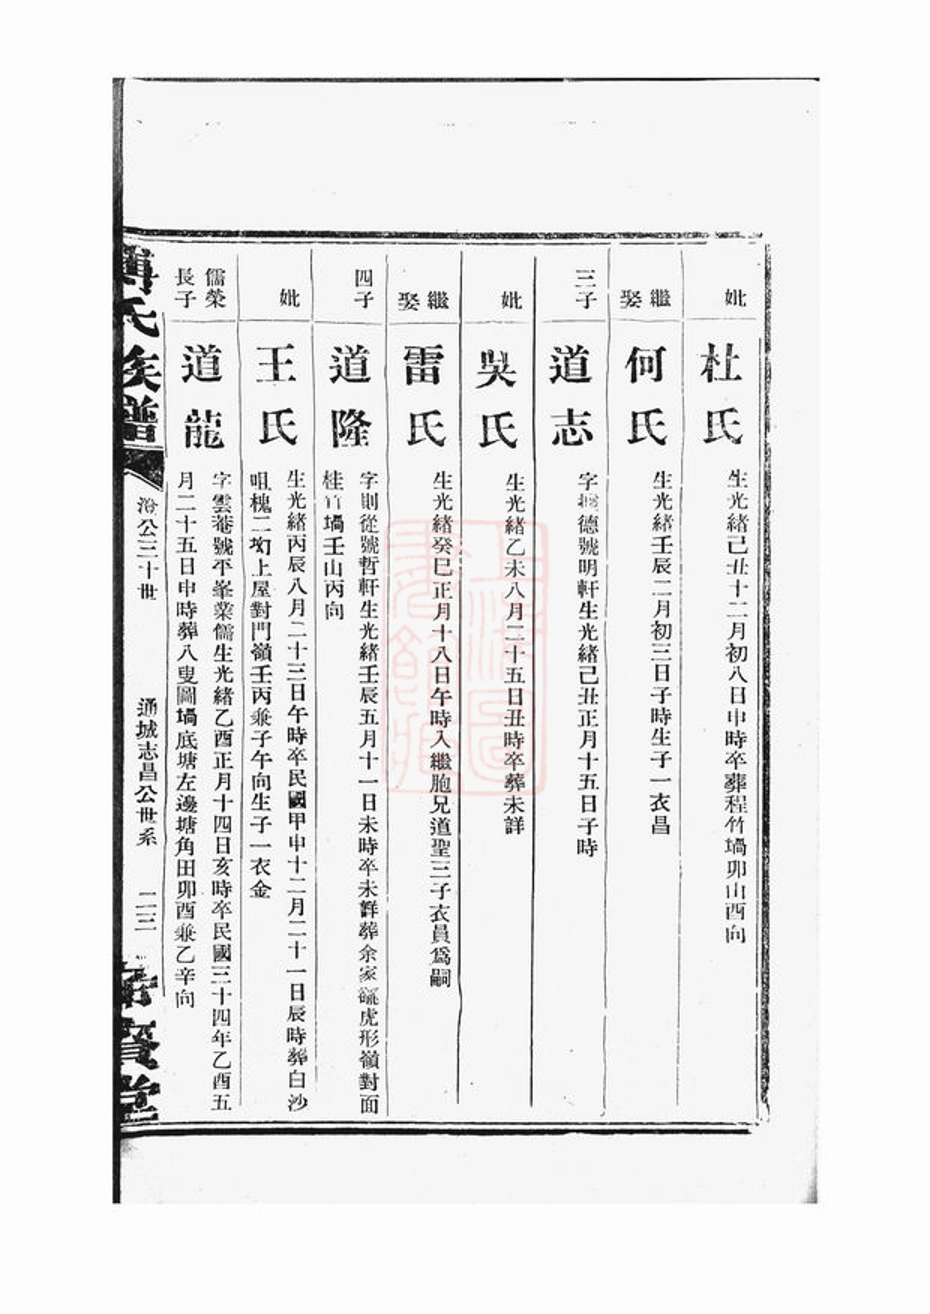 妣
杜氏
生光緒己丑十二月初八日申時卒葬程竹塥卯山酉向
繼娶
何氏
生光緒壬辰二月初三日子時生子一衣昌
三子
道志
字德號明軒生光緒己丑正月十五日子時
妣
吳氏
生光緒乙未八月二十五日丑時卒葬未詳
繼娶
雷氏
生光緒癸巳正月十八日午時入繼胞兄道聖三子衣員爲嗣
四子
道隆
字則從號哲軒生光緒壬辰五月十一日未時卒未詳葬余家虎形嶺對面
桂竹塥壬山丙向
妣
王氏
生光緒丙辰八月二十三日午時卒民國甲申十二月二十一日辰時葬白沙
咀槐二坳上屋對門嶺壬丙兼子午向生子一衣金
儒榮長子
道龍
字雲菴號平峯業儒生光緒乙酉正月十四日亥時卒民國三十四年乙酉五
月二十五日申時葬八叟圖塥底塘左邊塘角田卯酉兼乙辛向
氏族譜
公三十世
通城志昌公世系
二三
堂